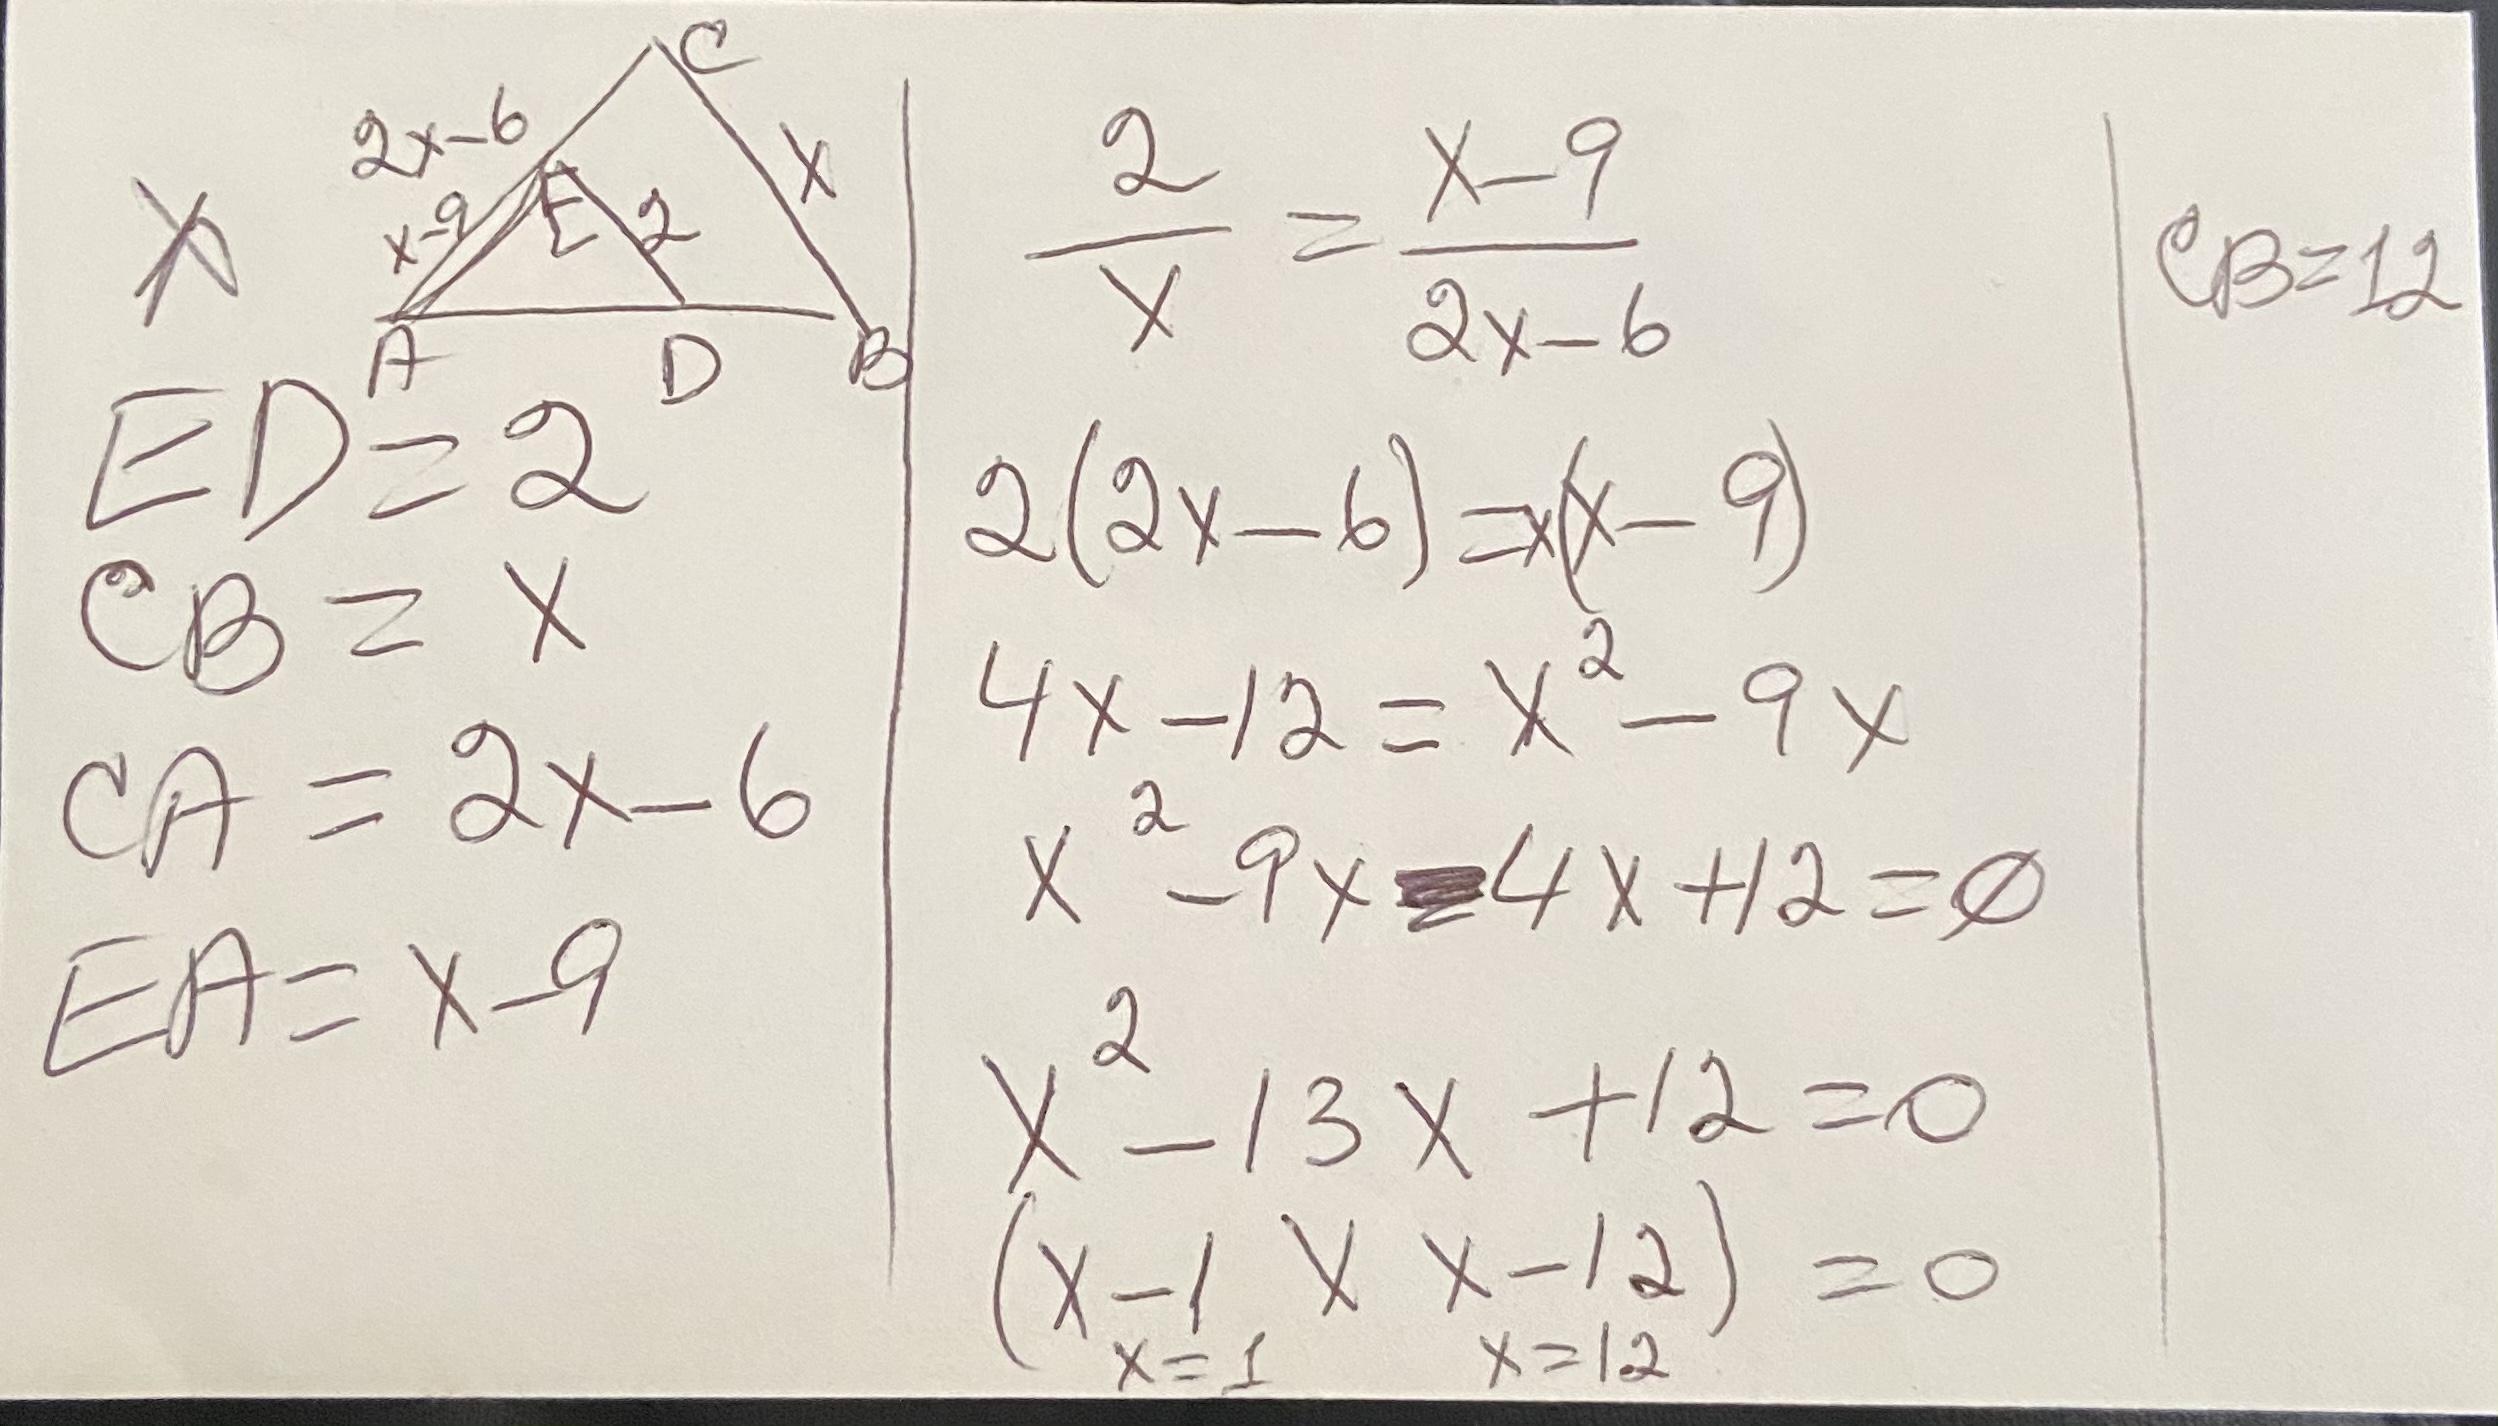 C
2x-6
x
E
x-9
2
X
A
D
B
ED=2
CB=x
CA=2x-6
EA=x-9
2/x = x-9/2x-6
2(2x-6)=x(x-9)
4x-12=x²-9x
x²-9x-4x+12=0
x²-13x+12=0
(x-1)(x-12)=0
x=1 x=12
CB=12